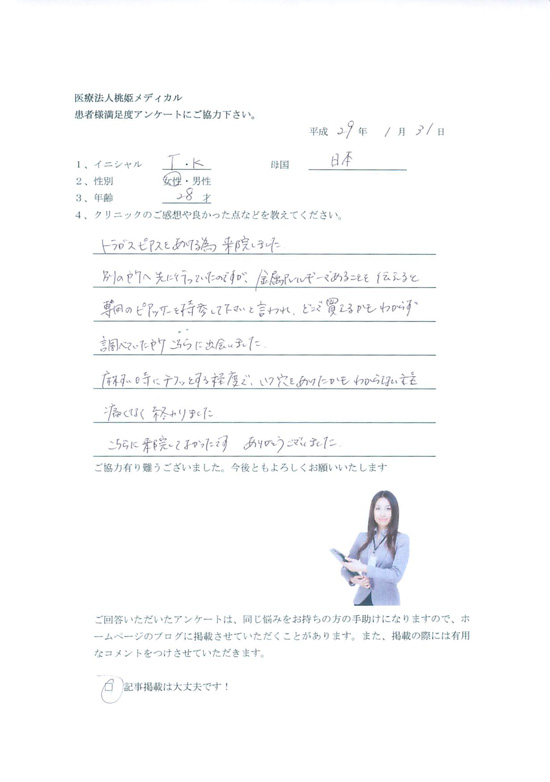 医療法人桃姫メディカル
患者様満足度アンケートにご協力下さい。
平成 29 年 1 月 31 日
1、イニシャル T・K 母国 日本
2、性別 女性・男性
3、年齢 28才
4、クリニックのご感想や良かった点などを教えてください。
トラガスピアスをあける為 来院しました
別の所へ先に行っていたのですが、金属アレルギーであることを伝えると
専用のピアッサーを持参して下さいと言われ、どこで買えるかもわからず
調べていた所 こちらに出会いました。
麻酔の時にチクッとする程度で、いつ穴をあけたかもわからない
痛くなく 終わりました
こちらに来院してよかったです ありがとうございました。
ご協力有り難うございました。今後ともよろしくお願いいたします
ご回答いただいたアンケートは、同じ悩みをお持ちの方の手助けになりますので、ホ
ームページのブログに掲載させていただくことがあります。また、掲載の際には有用
なコメントをつけさせていただきます。
□ 記事掲載は大丈夫です！